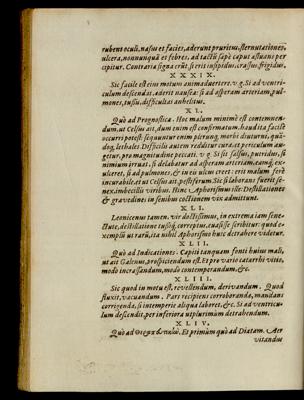 rubent oculi, nasus et facies, aderunt pruritus, sternutationes,
ulcera, nonnunquā et febres, ad tactū sæpè caput æstuans per
cipitur. Contraria signa erūt, si erit insipidus, crassus, frigidus.
XXXIX.
Sic facile est eius motum animadvertere. v.g. Si ad ventri-
culum descendat, aderit nausea: si ad asperam arteriam, pul-
mones, tussis, difficultas anhelitus.
XL.
Quò ad Prognostica. Hoc malum minimè est contemnen-
dum, ut Celsus ait, dum enim est confirmatum, haud ita facilè
occurri potest, sequuntur enim plerunq́;, morbi diuturni, quā-
doq́;, lethales. Difficilis autem redditur cura, et periculum au-
getur, pro magnitudine peccati. v.g. Si sit salsus, putridus, si
nimium irruat, si delabatur ad asperam arteriam, eamq́; ex-
ulceret, si ad pulmones, & in eis ulcus creet: erit malum ferè
incurabile, et ut Celsus ait, pestiferum. Sic si laborans fuerit se-
nex, imbecillis viribus. Hinc Aphorismus ille: Destillationes
& gravedines in senibus coctionem vix admittunt.
XLI.
Leonicenus tamen, vir doctissimus, in extrema iam sene-
ctute, destillatione tussiq́; correptus, evasisse scribitur: quod e-
xemplū ut rarū, ita nihil Aphorismo huic detrahere videtur.
XLII.
Quò ad Indicationes. Capiti tanquam fonti huius mali,
ut ait Galenus, prospiciendum est. Et pro vario catarrhi vitio,
modo incrassandum, modo contemperandum &c.
XLIII.
Sic quod in motu est, revellendum, derivandum. Quod
fluxit, vacuandum. Pars recipiens corroboranda, mundans
corrigenda, si intemperie aliqua laboret, &c. Si ad ventricu-
lum descendit, per inferiora ut plurimum detrahendum.
XLIV.
Quò ad Et primùm quò ad Diætam. Aer
vitandus